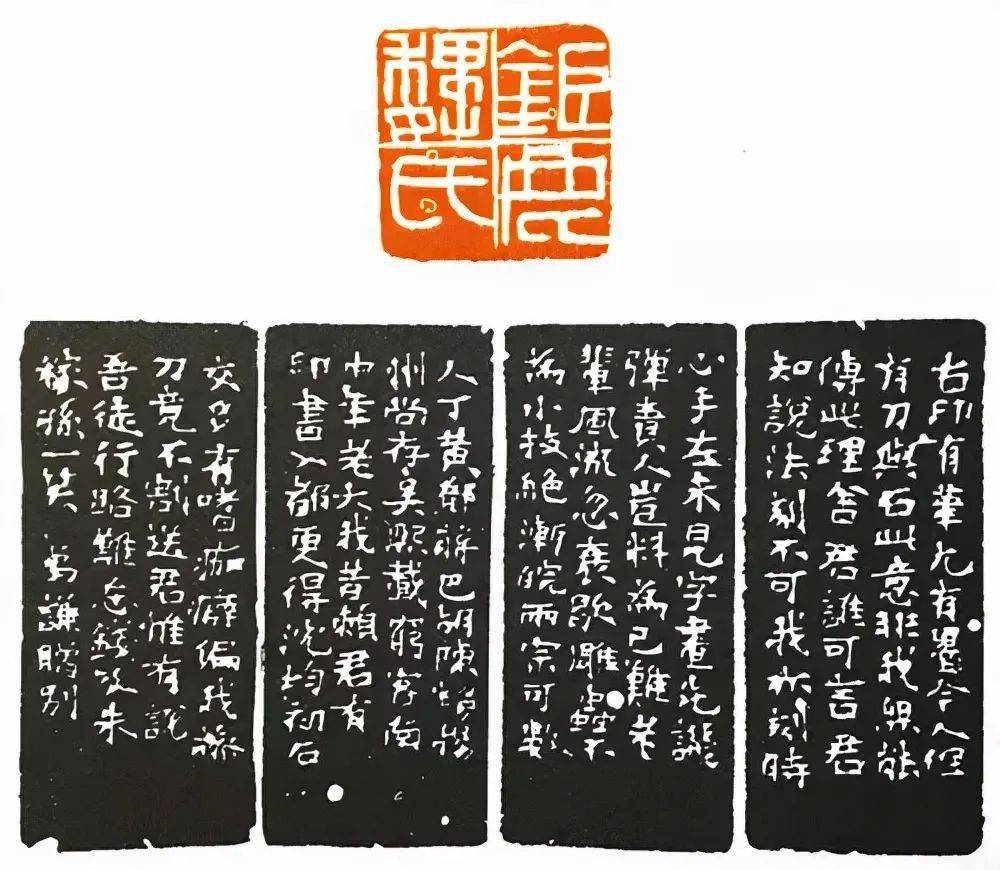 鉅鹿
魏氏
古印有筆尤有墨今人但
有刀與石此意非我無能
傳此理舍君誰可言君
知說法刻不可我亦刻時
心手左未見字畫先譏
彈責人豈料為己難老
輩風流忽衰歇雕蟲不
為小技絕漸皖兩宗可數
人丁黃鄧蔣巴胡陳揚
州尚存吳熙載窮客南
中年老大我昔贈君有
印書入都更得沈均初石
交只有嗜痂癖偏我操
刀竟不割送君惟有說
吾徒行路難忘次朱
稼孫一笑 謙贈別